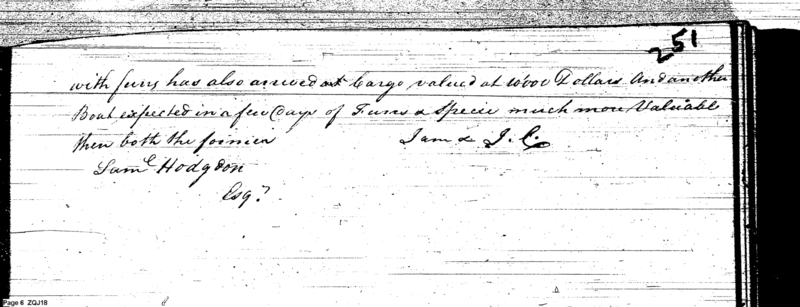 251
with furrs has also arrived Cargo valued at 10'000 Dollars. And another
Boat expected in a few Days of Furrs & Specie much more Valuable
then both the former I am & J. C.
Saml Hodgdon
Esqr
Page 6 ZQJ18